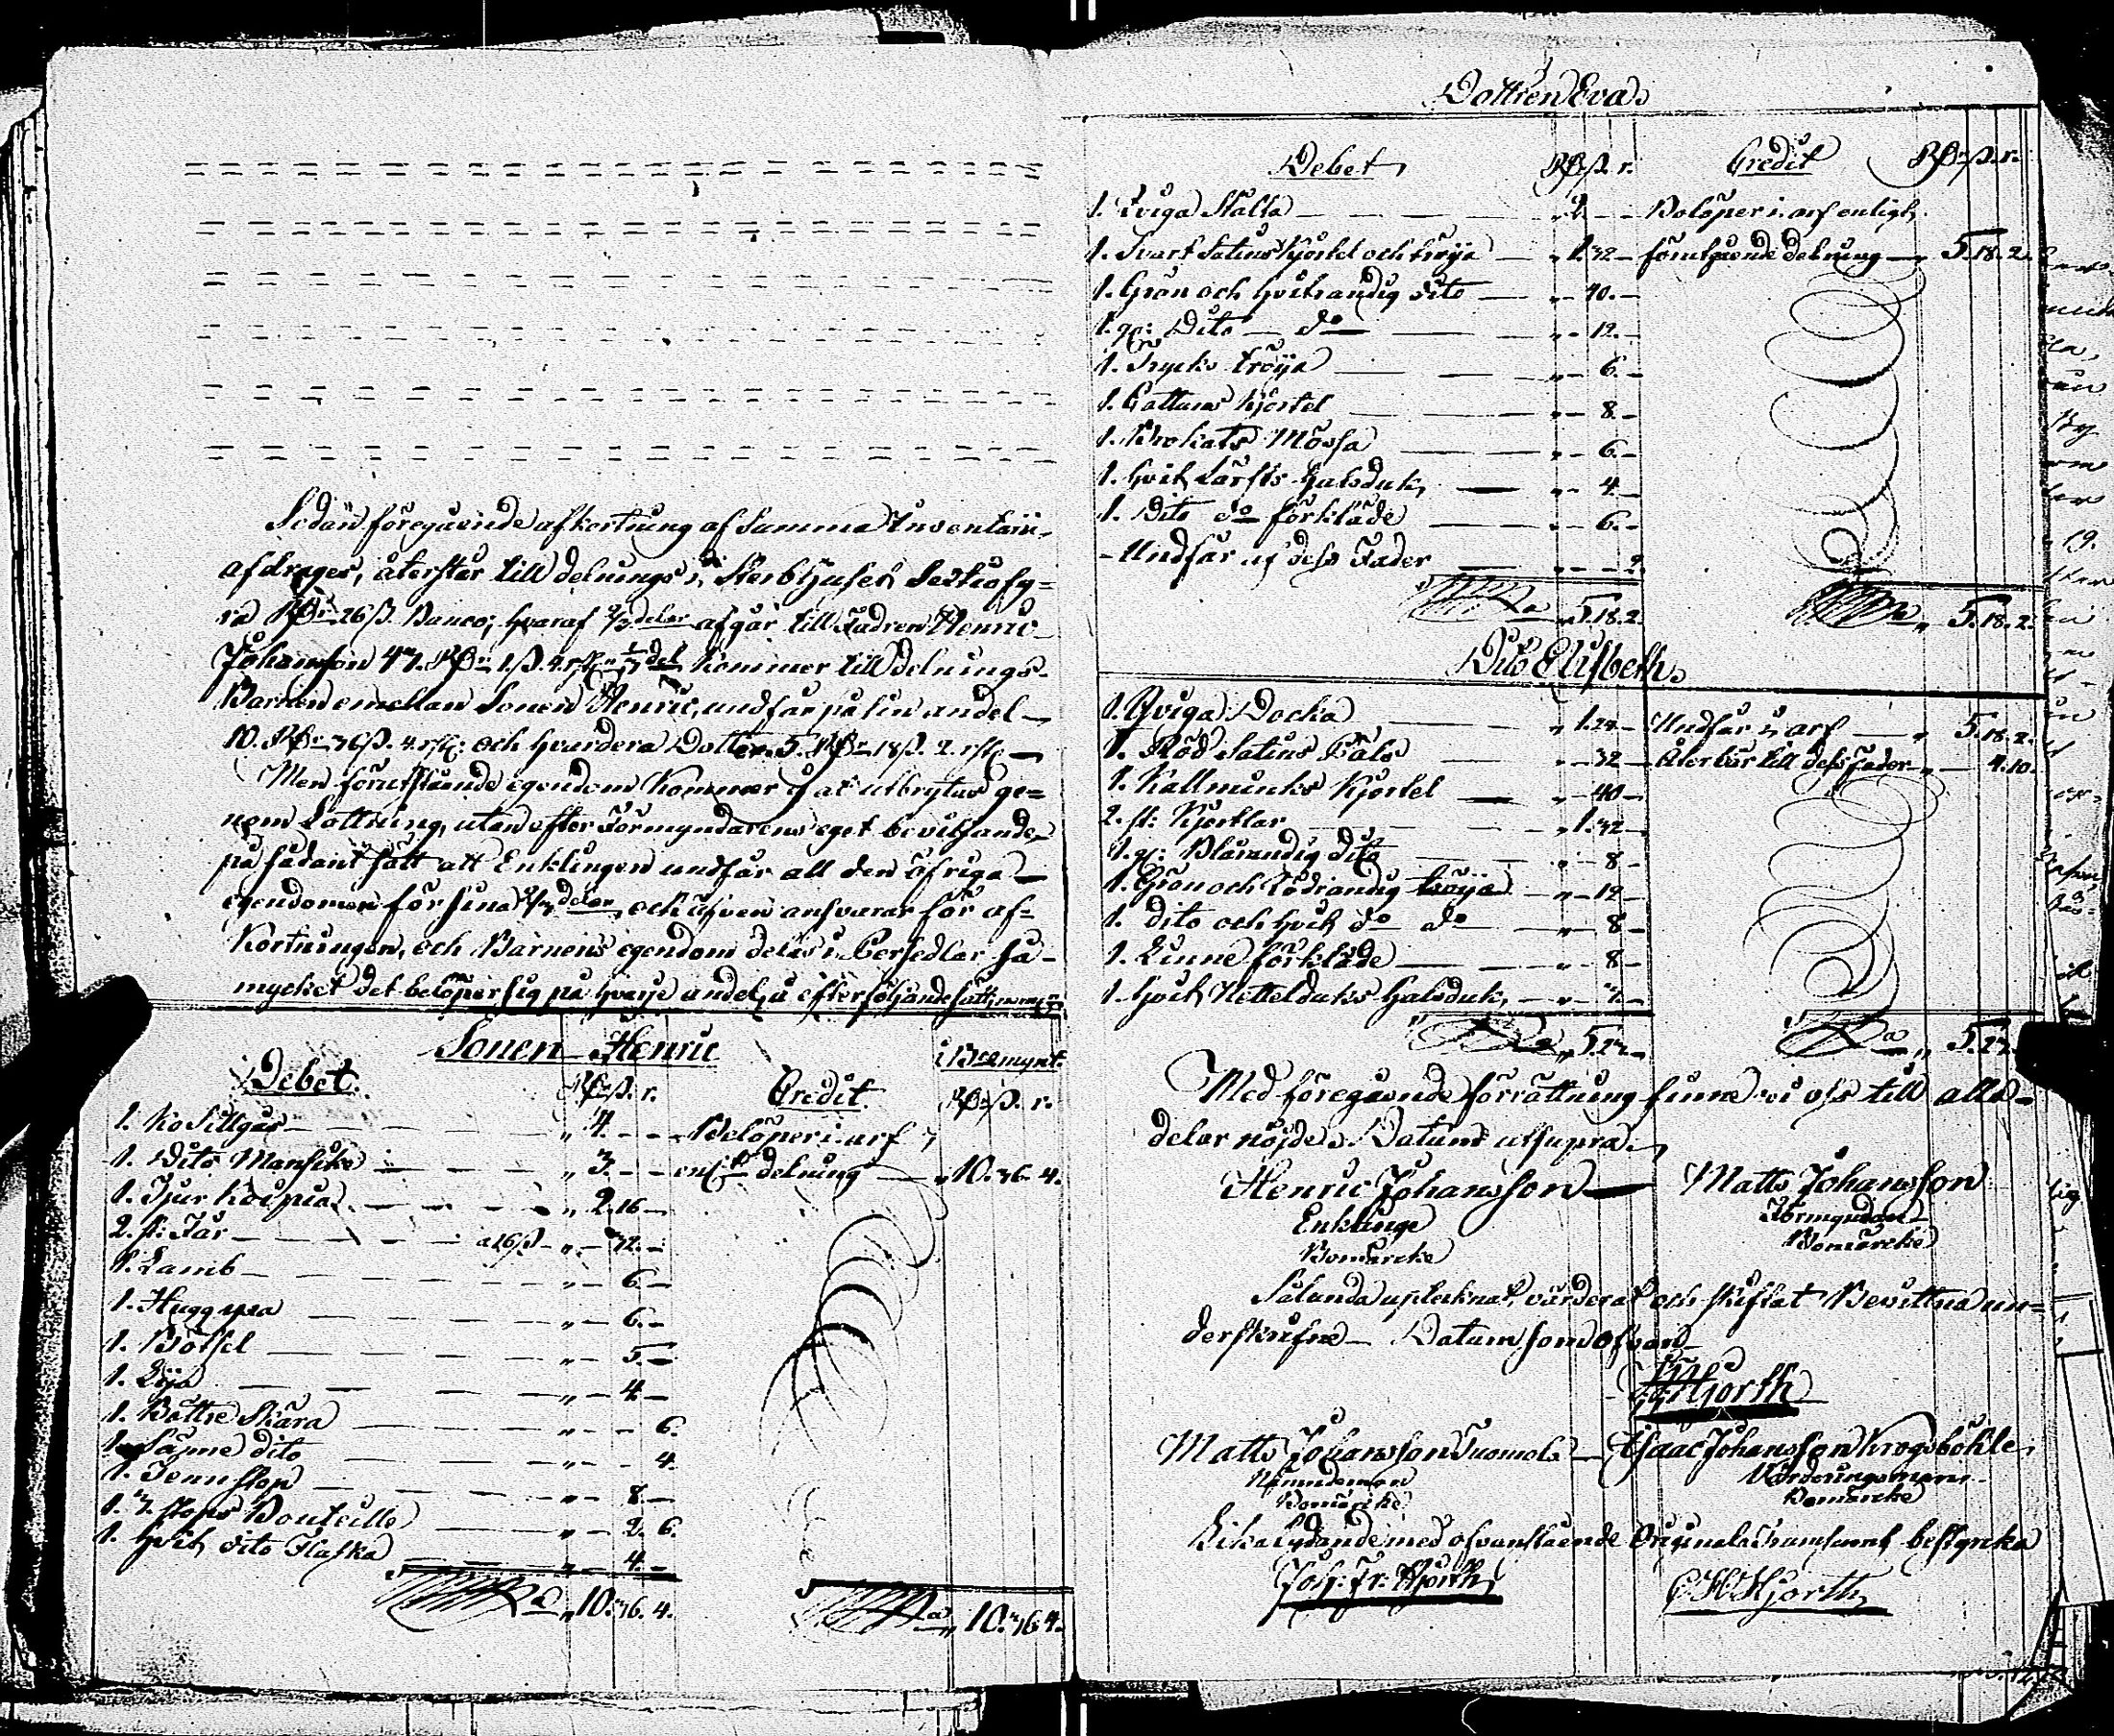 Sedan föregående afkortning af Summa Inventarii
afdrages, återstår till delnings i Sterbhuset Sextiofy=
ra Rdr 26 ß. Banco; hvaraf 2/3 delar afgår till Fadren Henric
Johansson 47. Rdr 1. ß. 4. rst: 1/3 del kommer till delnings
Barnen emellan Sonen Henric, undfår på sin andel
10. Rdr 36 ß. 4. rst: och hvardera Dotter 5. Rdr 18 ß. 2. rst:
Men förutstående egendom kommer ej at utbrytas ge=
nom Lottning, utan efter Förmyndarens eget beviljande
på sådant sätt att Enklingen undfår all den öfriga
egendomen för sina 2/3 delar, och äfven ansvarar för af=
kortningen, och Barnens egendom delas i Persedlar så
mycket det belöper sig på hvarje andel, å efterföljande sätt,
Sonen Henric
i Bcomynt.
Debet. Rdr ß. r. Credit Rdr ß. r.
1. Ko Sillgås „ 4. - - Belöper i arf
1. Dito Mansike „ 3. - - enl: delning „ 10. 36. 4.
1. Tjur „ 2. 16 -
2. st: Får a 16 ß „ - 32. -
1. Lamb „ - 6. -
1. Hugg yxa „ - 6. -
1. Bötsel „ - 5. -
1. Lija „ - 4. -
1. Bättre Skära „ - - 6.
1. Sämre dito „ - - 4.
1. Tenn stop „ - 8. -
1. 3. stops Bouteille „ - 2. 6.
1. hvit dito Flaska „ - 4. -
„ 10. 36. 4. „ 10. 36. 4.
Dottren Eva.
Debet Rdr ß. r. Credit Rdr ß. r.
1. Qviga Stålta „ 2. - - Belöper i arf enligt
1. Svart Satins Kjortel och tröja „ 1. 32 - förutgående delning „ 5. 18. 2.
1. Grön och hvitrandig dito „ - 40. -
1. gl: Dito do „ - 12. -
1. Trycks tröija „ - 6. -
1. Cattuns Kjortel „ - 8. -
1. Brokats Mössa „ - 6. -
1. hvit Lärfts halsduk „ - 4. -
1. Dito do förkläde „ - 6. -
- Undfår af dess Fader „ - - 2.
„ 5. 18. 2. „ 5. 18. 2.
Dito Elisbeth.
1. Qviga Docka „ 1. 24 - Undfår i arf „ 5. 18. 2.
1. Röd Satins „ - 32 - Återbär till dess Fader „ - 4. 10.
1. Kallminks Kjortel „ - 40 -
2. st: Kjortlar „ 1. 32 -
1. gl: Blårandig dito „ - 8 -
1. Grön och rödrandig tröija „ - 12 -
1. dito och hvit do do „ - 8 -
1. Linne förkläde „ - 8 -
1. hvit Nettelduks halsduk „ - -
„ 5. 23. - „ 5. 23. -
Med föregående förrättning finne vi oss till alla
delar nöjde. Datum utsupra.
Henric Johansson Matts Johansson
Enklinge Förmyndare
Bomärcke Bomärcke
Sålunda uptecknat, värderat och skiftat Bevittna un=
derskrifne Datum som ofvan
Hjorth
Matts Johansson Suomela Isaac Johansson Krogsböhle
Nämndeman Värderingsman
Bomärcke Bomärcke
Lika lydande med ofvanstående Original Transsumt bestyrcka
Joh: Fr: Hjorth C H Hjorth